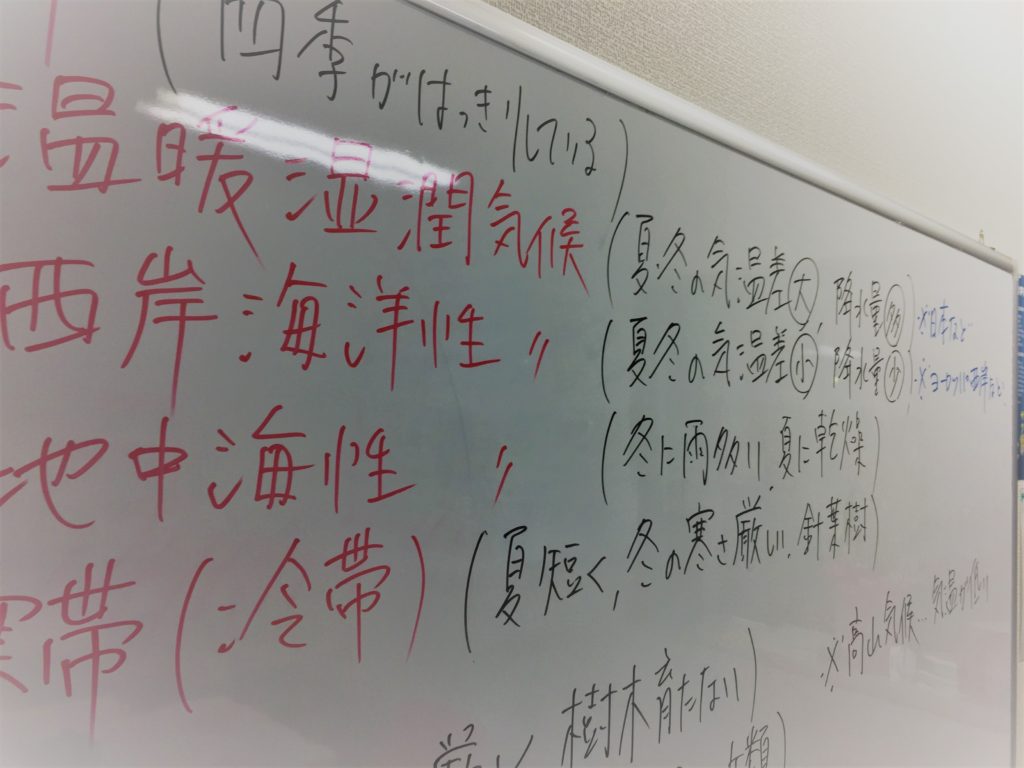 (四季がはっきりしている)
温暖湿潤気候 (夏冬の気温差大, 降水量多) ※日本など
西岸海洋性〃 (夏冬の気温差小, 降水量少) ※ヨーロッパの西岸など
地中海性〃 (冬に雨多い, 夏に乾燥)
帯(冷帯) (夏短く, 冬の寒さ厳しい, 針葉樹)
樹木育たない) ※高山気候…気温が低い
類)